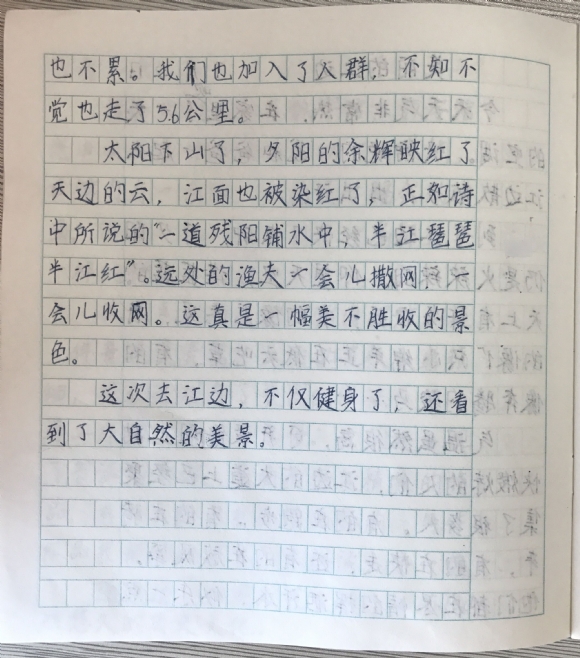 也不累。我们也加入了人群，不知不
觉也走了5.6公里。
太阳下山了，夕阳的余辉映红了
天边的云，江面也被染红了，正如诗
中所说的“一道残阳铺水中，半江琵琶
半江红”。远处的渔夫一会儿撒网，一
会儿收网。这真是一幅美不胜收的景
色。
这次去江边，不仅健身了，还看
到了大自然的美景。